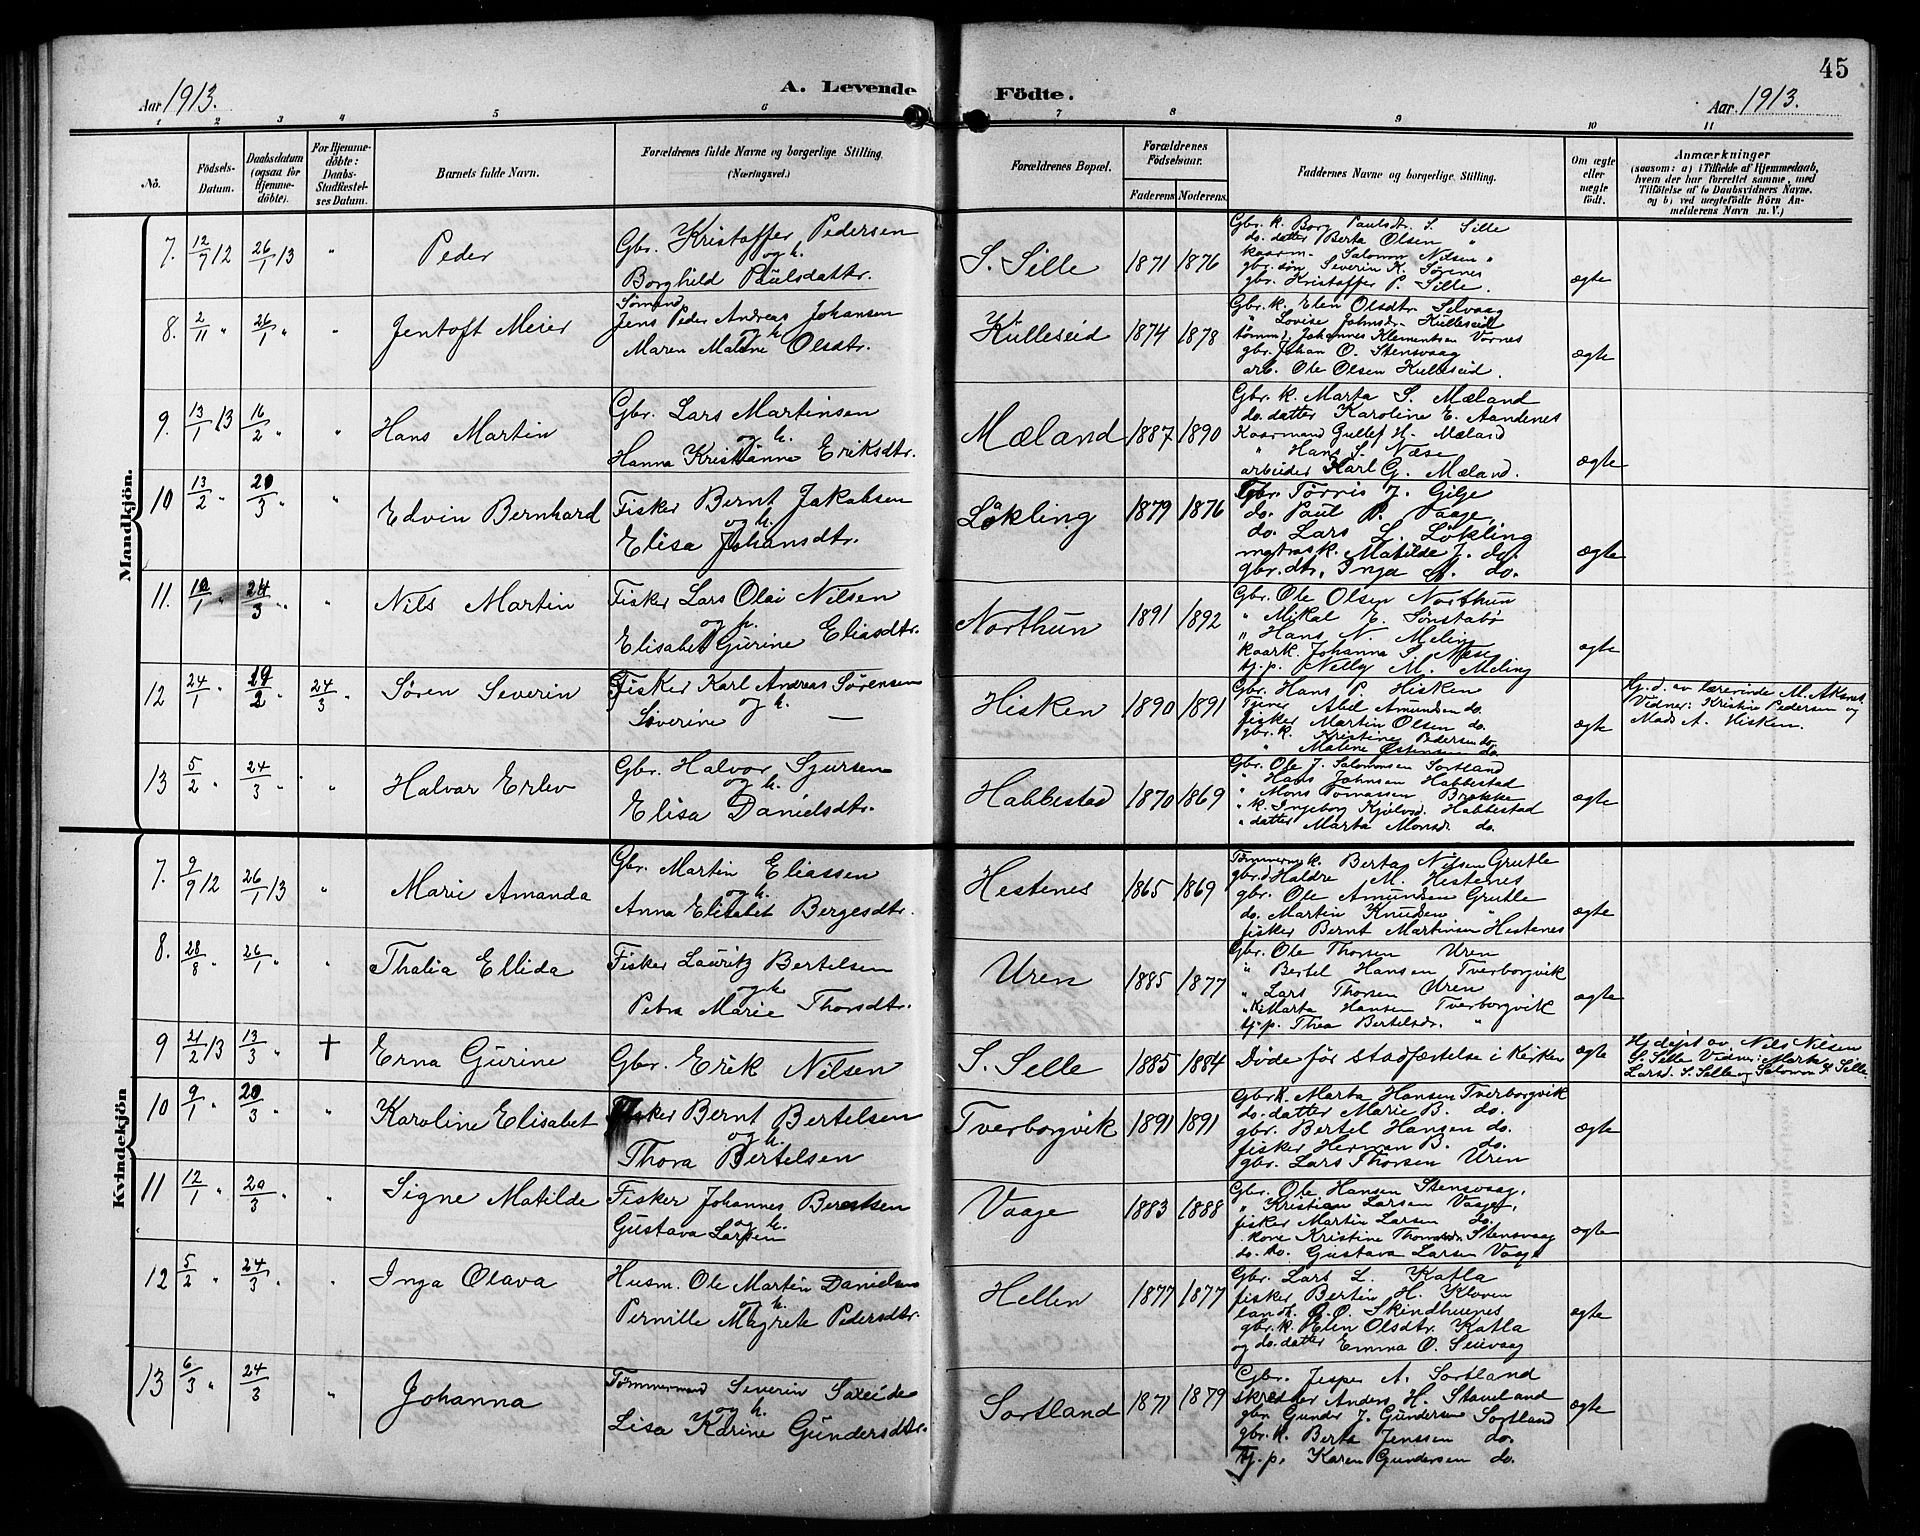 45
Aar 1913.
A. Levende Födte.
Aar. 1913.
1 2 3 4 5 6 7 8 9 10 11
No.
Födsels-Datum.
Daabsdatum (ogsaa for Hjemme-döbte).
For Hjemme-döbte: Daabs-Stadfæstel-ses Datum.
Barnets fulde Navn.
Forældrenes fulde Navne og borgerlige Stilling. (Næringsvei.)
Forældrenes Bopæl.
Forældrenes Födselsaar.
Faderens
Moderens.
Faddernes Navne og borgerlige Stilling.
Om ægte eller uægte födt.
Anmærkninger
(saasom: a) i Tilfælde af Hjemmedaab,
hvem der har forrettet samme, med
Tilföielse af to Daabsvidners Navne.
og b) ved uægtefödte Börn An-
melderens Navn m. V.)
Mandkjön.
7. 12/9 12 26/1 13 " Peder
Gbr. Kristoffer Pedersen
og h.
Borghild Paulsdattr.
S. Sille 1871 1876
Gbr. k. Borg Paulsdr. S. Sille
do. datter Berta Olsen "
kaarm. Salomon Nilsen "
gbr. søn Severin K. Sørenes
gbr. Kristoffer P. Sille.
ægte
8. 2/11 " 26/1 " " Jentoft Meier
Sømand
Jens Peder Andreas Johansen
og h.
Maren Malene Olsdtr.
Kulleseid 1874 1878
Gbr. k. Elen Olsdtr. Selvaag
" Lovise Johnsdr. Kulleseid
tømm. Johannes Klementsen Vornes
gbr. Johan O. Stensvaag
arb. Ole Olsen Kulleseid.
ægte
9. 13/1 13 16/2 " " Hans Martin
Gbr. Lars Martinsen
og h.
Hanna Kristianne Eriksdtr.
Mæland 1887 1890
Gbr. k. Marta S. Mæland
do. datter Karoline E. Aandenes
Kaarmand Gullef H. Mæland
" Hans S. Næse
arbeider Karl G. Mæland.
ægte
10 13/2 " 20/3 " " Edvin Bernhard
Fisker Bernt Jakobsen
og h.
Elisa Johansdtr.
Løkling 1879 1876
Gbr. Tørris J. Gilje
do. Paul P. Vaage,
do. Lars L. Løkling
matrosk. Matilde J. do.
gbr. dtr. Inga A. do.
ægte
11. 10/1 " 24/3 " " Nils Martin
Fisker Lars Olai Nilsen
og h.
Elisabet Gurine Eliasdtr.
Northun 1891 1892
Gbr. Ole Olsen Northun
" Mikal E. Sønstabø
" Hans N. Meling
kaark. Johanna S. Næse
tj. p. Nelly M. Meling
ægte
12 24/1 " 19/2 " 24/3 " Søren Severin
Fisker Karl Andreas Sørensen
og h.
Severine —
Hisken 1890 1891
Gbr. Hans P. Hisken
Tjener Abel Amundsen do.
fisker Martin Olsen do.
gbr. k. Kristine Pedersen do.
" Malene Østensen do.
ægte
Hj. d. av lærerinde M. Aksnes
Vidner: Kristin Pedersen og
Mads A. Hisken.
13 5/2 " 24/3 " " Halvar Erlev
Gbr. Halvor Sjursen
og h.
Elisa Danielsdtr.
Habbestad 1870 1869
Gbr. Ole J. Salomonsen Sortland
" Hans Johnsen Habbestad
" Mons Tomassen Brekke
" k. Ingeborg Kjølvsd. Habbestad
" datter Marta Monsd. do.
ægte
Kvindekjön
7. 9/9 12 26/1 13 " Marie Amanda
Gbr. Martin Eliassen
og h.
Anna Elisabet Bergesdtr.
Hestenes 1865 1869
Tømmerm. k. Berta Nilsen Grutle
gbr. d. Haldre M. Hestenes
gbr. Ole Amundsen Grutle
do. Martin Knudsen "
fisker Bernt Martinsen Hestenes
ægte
8. 28/8 " 26/1 " " Thalia Ellida
Fisker Lauritz Bertelsen
og h.
Petra Marie Thorsdtr.
Uren 1885 1877
Gbr. Ole Thorsen Uren
" Bertel Hansen Tverborgvik
" Lars Thorsen Uren
" k. Marta Hansen Tverborgvik
tj. p. Thea Bertelsdr. "
ægte
9 21/2 13 13/3 " † Erna Gurine
Gbr. Erik Nilsen
S. Selle 1885 1884
Døde før stadfæstelse i kirken
ægte
Hj. døpt av Nils Nilsen
S. Selle Vidner: Marta
Larsd. S. Selle og Salomon K. Sille.
10 9/1 " 20/3 " " Karoline Elisabet
Fisker Bernt Bertelsen
og h.
Thora Bertelsen
Tverborgvik 1891 1891
Gbr. k. Marta Hansen Tverborgvik
do. datter Marie B. do.
gbr. Bertel Hansen do.
fisker Herman B. do.
gbr. Lars Thorsen Uren
ægte
11 12/1 " 20/3 " " Signe Matilde
Fisker Johannes Berentsen
og h.
Gustava Larsen
Vaage 1883 1888
Gbr. Ole Hansen Stensvaag,
" Kristian Larsen Vaage,
fisker Martin Larsen do.
kone Kristine Thomasdr. Stensvaag
do. do. Gustava Larsen Vaage
ægte
12 5/2 " 24/3 " " Inga Olava
Husm. Ole Martin Danielsen
og h.
Pernille Magrete Pedersdtr.
Hellen 1877 1877
Gbr. Lars L. Katla
fisker Bertin H. Kloven
landh. O. O. Skindhuenes
gbr. k. Elin Olsdtr. Katla
og do. datter Emma O. Seivaag
ægte
13 6/3 " 24/3 " Johanna
Tømmermand Severin Saxeide
og h.
Lisa Karine Gundersdtr.
Sortland 1871 1879
Gbr. Jesper A. Sortland
skredder Anders H. Stavland
gbr. Gunder J. Gundersen Sortland
gbr. k. Berta Jenssen do.
tj. p. Karen Gundersen do.
ægte